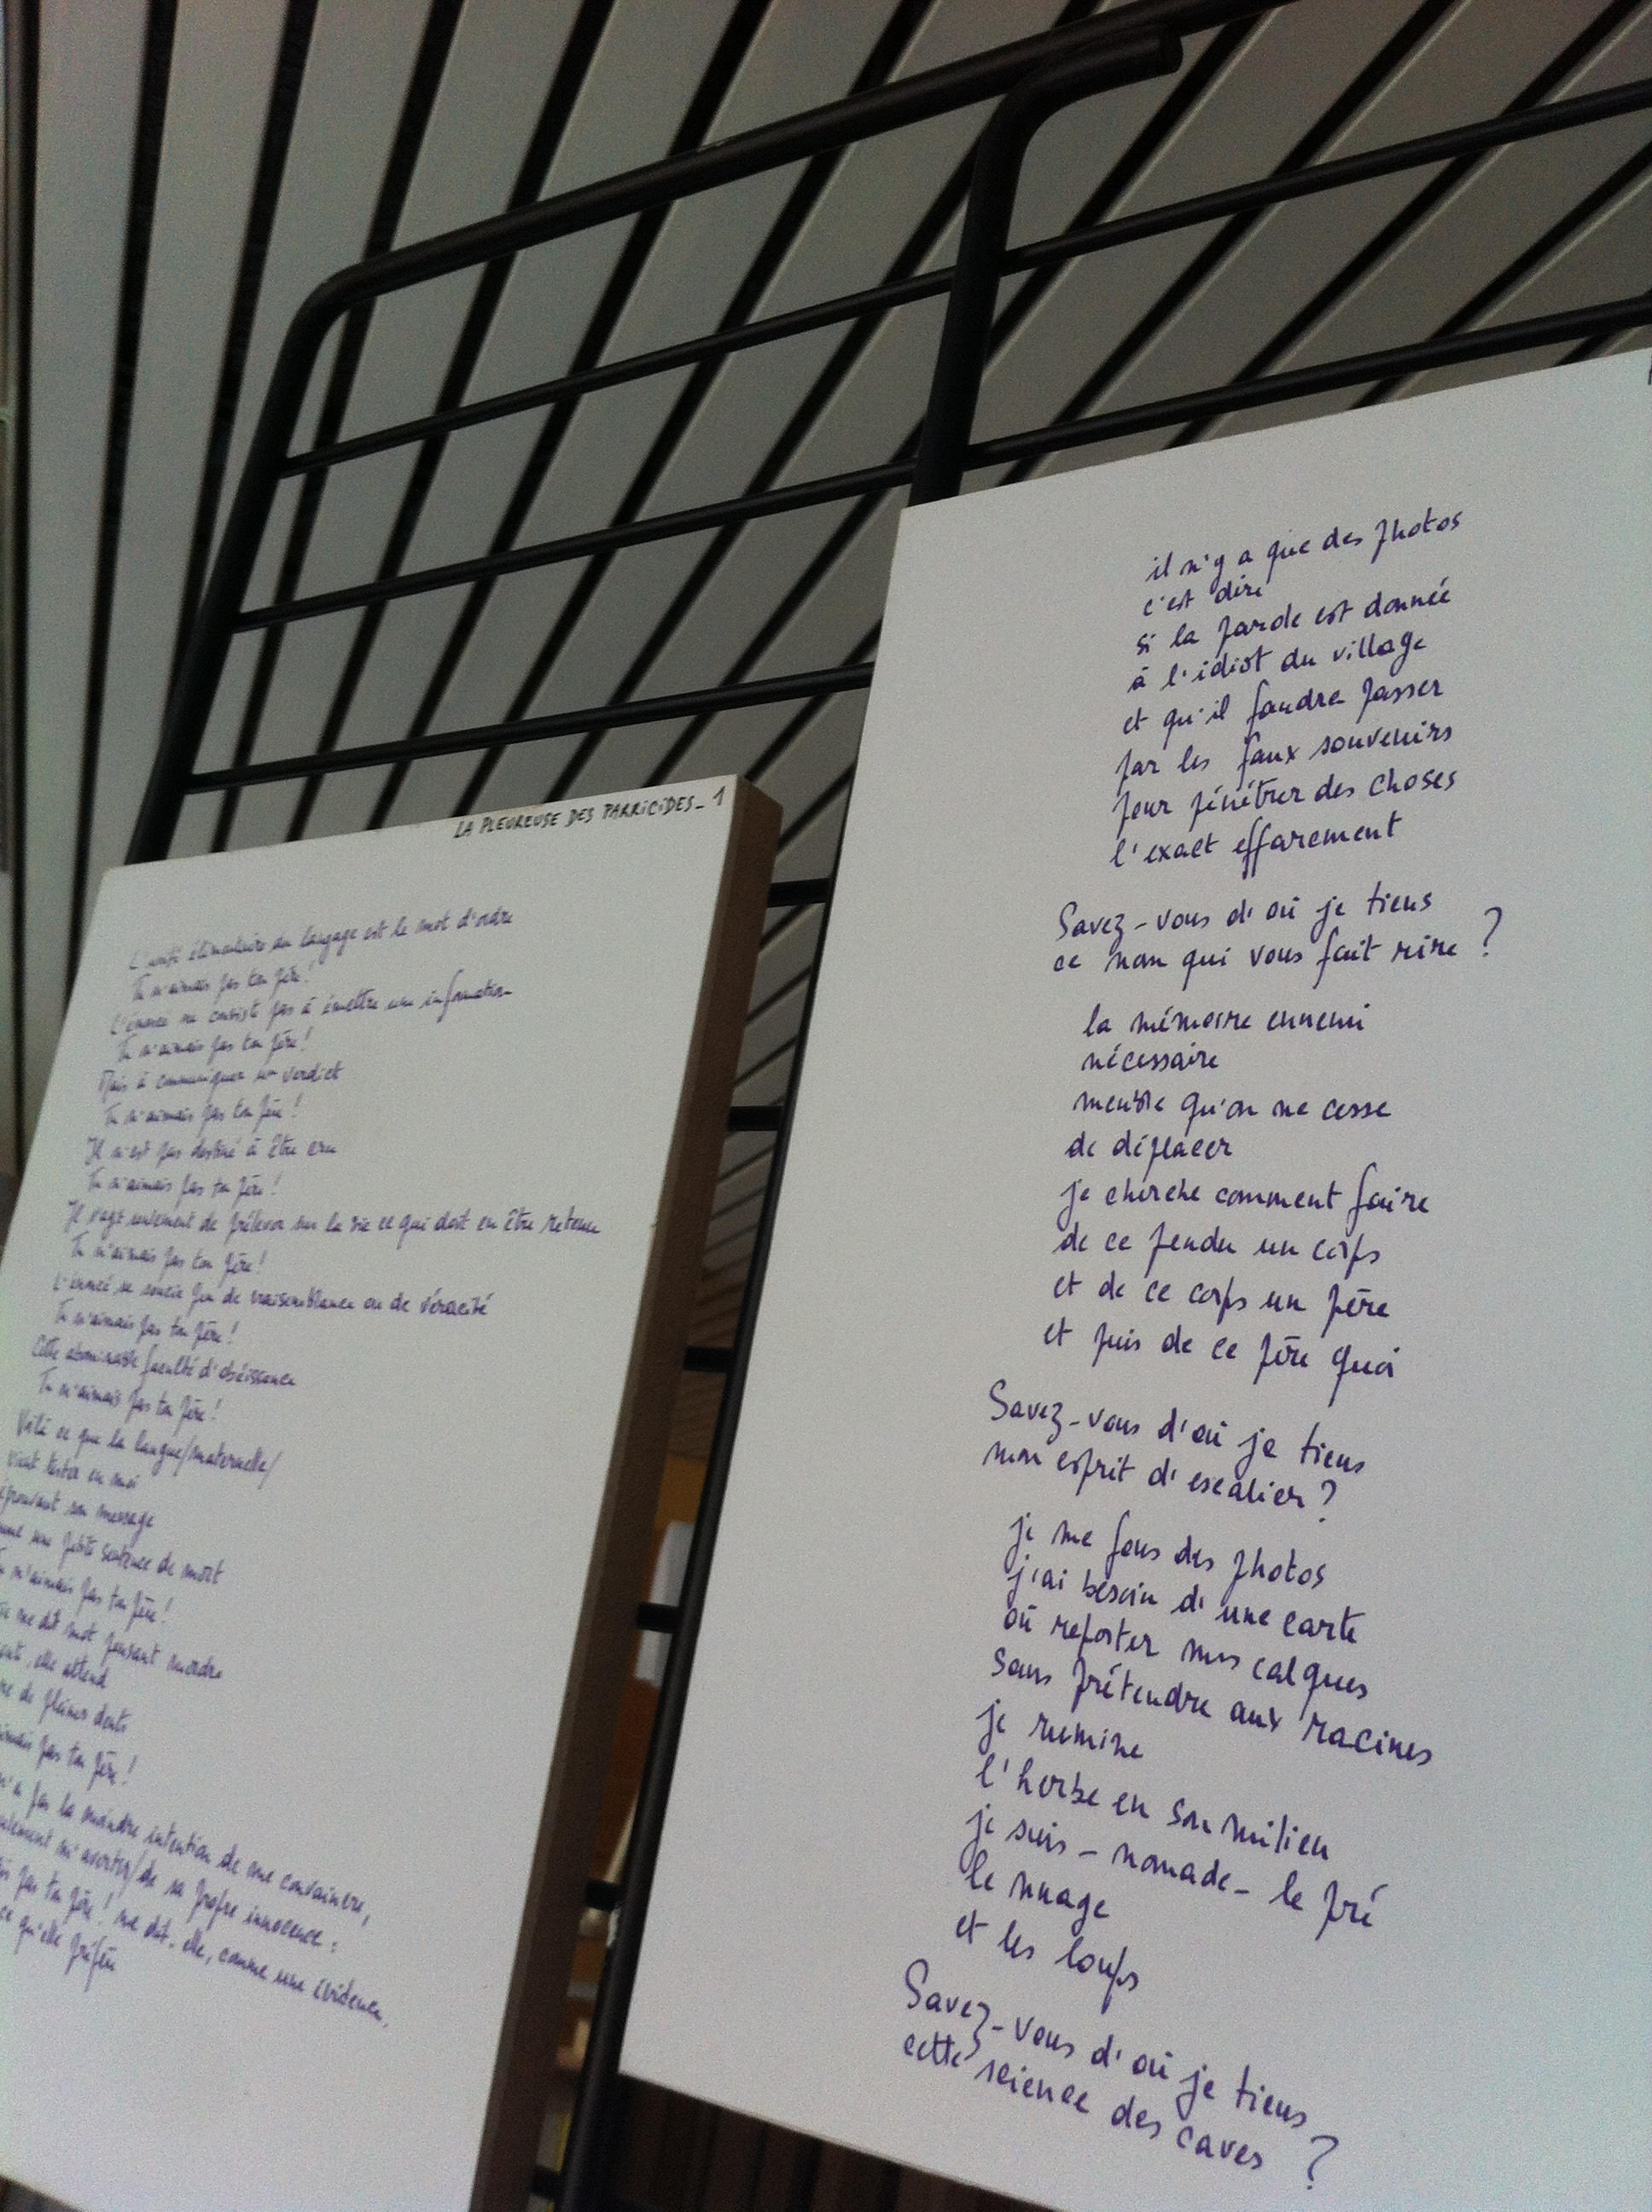 LA PLEUREUSE DES PARRICIDES_1
L'unité élémentaire du langage est le mot d'ordre
Tu n'aimais pas ton père !
L'énoncé ne consiste pas à émettre une information
Tu n'aimais pas ton père !
Mais à communiquer un verdict
Tu n'aimais pas ton père !
Il n'est pas destiné à être cru
Tu n'aimais pas ton père !
Il s'agit seulement de prélever sur la vie ce qui doit en être retenu
Tu n'aimais pas ton père !
L'énoncé se soucie peu de vraisemblance ou de véracité
Tu n'aimais pas ton père !
Cette abominable faculté d'obéissance
Tu n'aimais pas ton père !
Voilà ce que la langue/maternelle/
vient tester en moi
éprouvant son message
une petite sentence de mort
n'aimais pas ton père !
me dit mot pensant mordre
elle attend
de pleines dents
pas ton père !
n'a pas la moindre intention de me convaincre,
m'avertir/de sa propre innocence :
pas ton père ! me dit-elle, comme une évidence,
ce qu'elle préfère
il n'y a que des photos
c'est dire
si la parole est donnée
à l'idiot du village
et qu'il faudra passer
par les faux souvenirs
pour pénétrer des choses
l'exact effarement
Savez-vous d'où je tiens
ce nom qui vous fait rire ?
la mémoire ennemi
nécessaire
meuble qu'on ne cesse
de déplacer
je cherche comment faire
de ce pendu un corps
et de ce corps un père
et puis de ce père quoi
Savez-vous d'où je tiens
mon esprit d'escalier ?
je me fous des photos
j'ai besoin d'une carte
où reporter mes calques
sans prétendre aux racines
je rumine
l'herbe en son milieu
je suis - nomade - le pré
le nuage
et les loups
Savez-vous d'où je tiens
cette science des caves ?